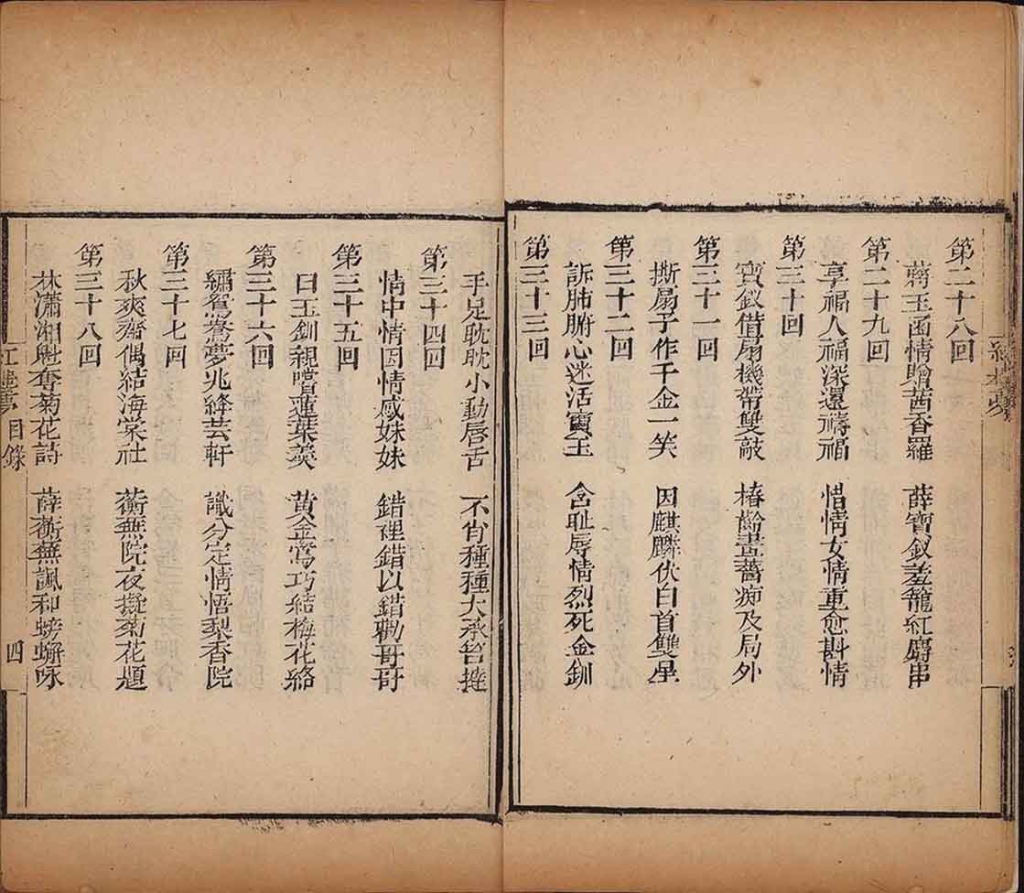 第二十八回
蔣玉函情贈茜香羅　薛寶釵羞籠紅麝串
第二十九回
享福人福深還禱福　惜情女情重愈斟情
第三十回
寶釵借扇機帶雙敲　椿齡畫薔痴及局外
第三十一回
撕扇子作千金一笑　因麒麟伏白首雙星
第三十二回
訴肺腑心迷活寶玉　含耻辱情烈死金釧
第三十三回
手足耽耽小動唇舌　不肖種種大承笞撻
第三十四回
情中情因情感妹妹　錯裡錯以錯勸哥哥
第三十五回
白玉釧親嘗蓮葉羹　黃金鶯巧結梅花絡
第三十六回
繡鴛鴦夢兆絳芸軒　識分定情悟梨香院
第三十七回
秋爽齋偶結海棠社　蘅蕪院夜擬菊花題
第三十八回
林瀟湘魁奪菊花詩　薛蘅蕪諷和螃蟹咏
紅樓夢　目錄　四